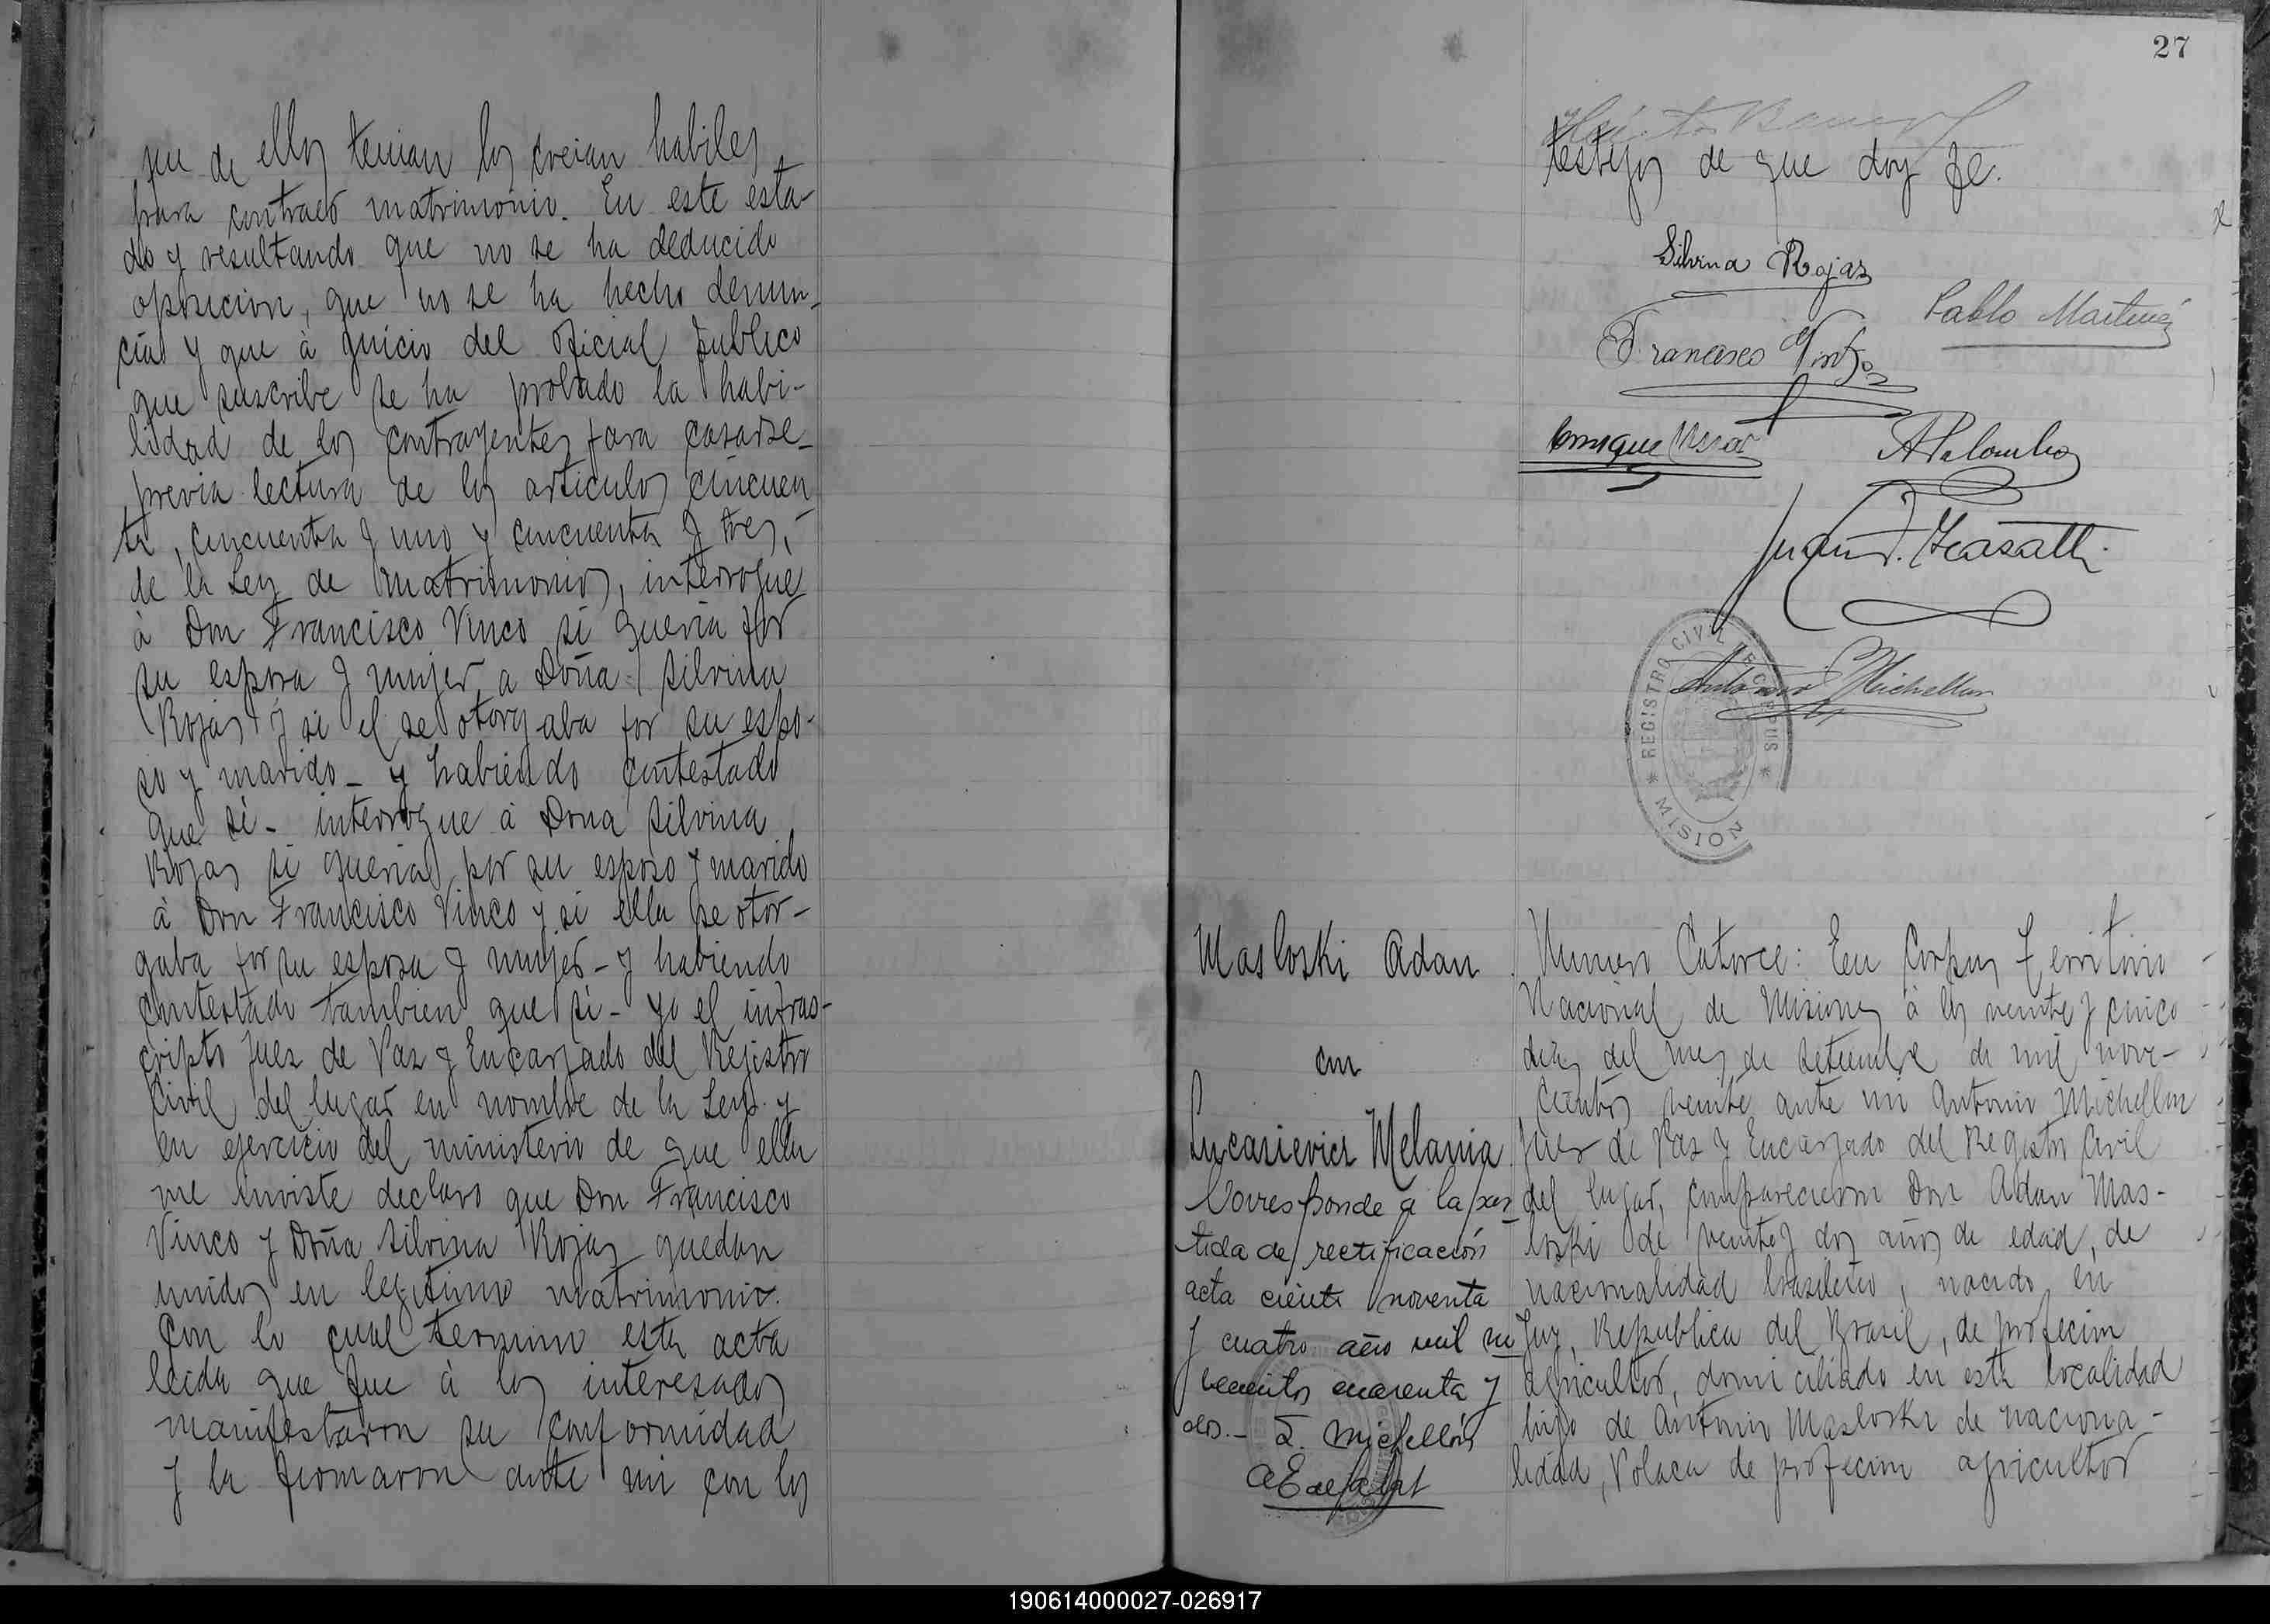 que de ellos tenian los creian habiles
para contraer matrimonio. En este esta-
do y resultando que no se ha deducido
oposicion, que no se ha hecho denun-
cia y que à juicio del oficial publico
que suscribe se ha probado la habi-
lidad de los contrayentes para casarse_
previa lectura de los articulos cincuen
ta, cincuenta y uno y cincuenta y tres,-
de la Ley de Matrimonio, interrogue
à Don Francisco Vinco si queria por
su esposa y mujer a Doña Silvina
Rojas y si el se otorgaba por su espo-
so y marido_ y habiendo contestado
que si- interrogue à Dona Silvina
Rojas si queria por su esposo y marido
à Don Francisco Vinco y si ella se otor-
gaba por su esposa y mujer- y habiendo
contestado tambien que si- yo el infras-
cripto Juez de Paz y Encargado del Rejistro
Civil del lugar en nombre de la Ley y
en ejercicio del ministerio de que ella
me inviste declaro que Don Francisco
Vinco y Doña Silvina Rojas quedan
unidos en legitimo matrimonio.
Con lo cual termino esta acta
leida que fue à los interesados
manifestaron su conformidad
y la firmaron ante mi con los
27
testigos de que doy fe.
Silvina Rojas
Pablo Martinez
Francisco
Enrique
A Palombo
Juan
REGISTRO CIVIL DE CORPUS
Antonio Michellon
* MISION *
Masloski Adan
con
Lucasievicz Melania
Corresponde a la par
tida de rectificación
acta ciento noventa
y cuatro año mil no
vecientos cuarenta y
dos.- Michellón
Numero Catorce: En Corpus Territorio
Nacional de Misiones à los veinte y cinco
dias del mes de Setiembre de mil nove-
cientos veinte ante mi Antonio Michellon
Juez de Paz y Encargado del Registro Civil
del lugar, comparecieron Don Adan Mas-
loski de veinte y dos años de edad, de
nacionalidad brasilero, nacido en
Republica del Brasil, de profecion
agricultor, domiciliado en esta localidad
hijo de Antonio Masloski de naciona-
lidad, Polaca de profecion agricultor
190614000027-026917